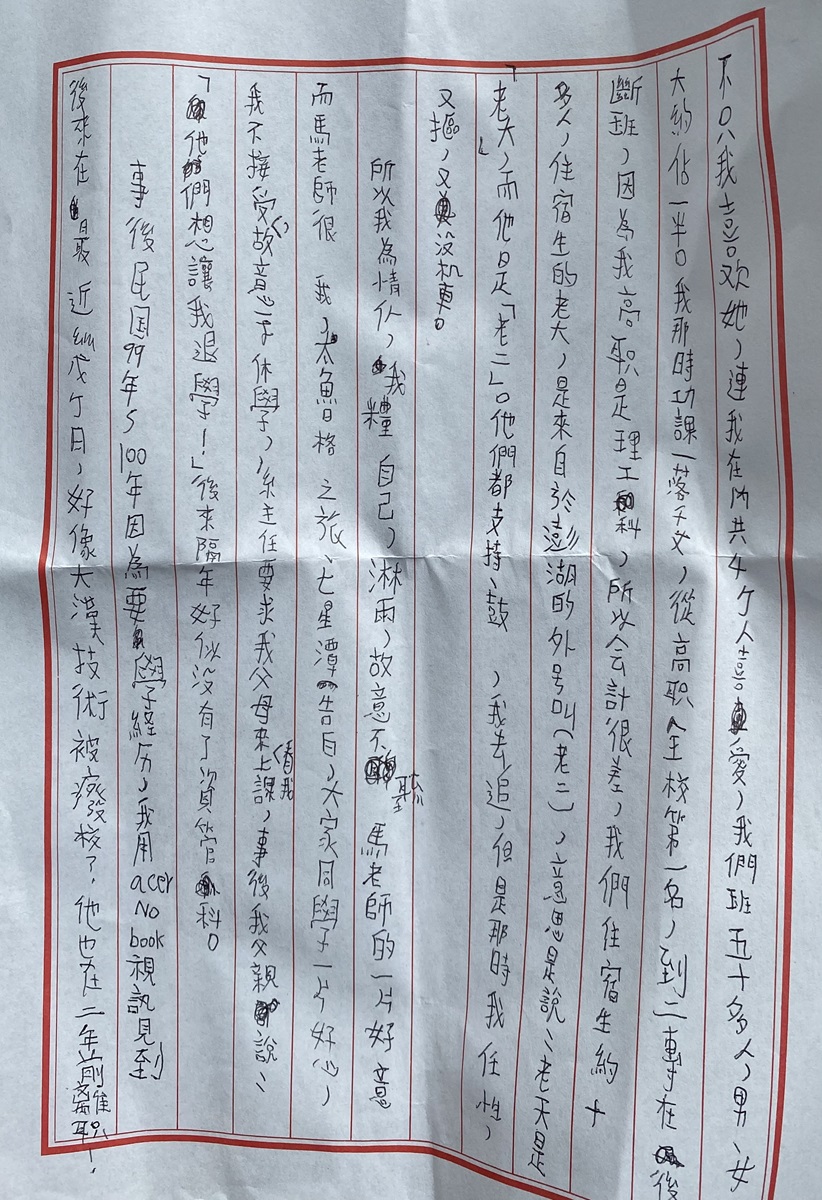 不只我喜歡她，連我在內共4个人喜愛，我們班五十多人，男、女
大約佔一半。我那時功課一落千丈，從高职全校第一名，到二專在後
斷班，因為我高职是理工科，所以会計很差，我們住宿生約十
多人，住宿生的老大，是來自於澎湖的外号叫(老二)，意思是說：老天是
「老大」，而他是「老二」。他們都支持、鼓，我去追，但是那時我任性，
又摳，又沒机車。
所以我為情 ，我糟 自己，淋雨，故意不聽馬老師的一片好意
而馬老師很 我，太魯格之旅、七星潭告白，大家同學一片好心，
我不接受，故意 休學，系主任要求我父母來上課(看我)，事後我父親說：
「他們想讓我退學！」後來隔年好似沒有了資管科。
事後民国99年～100年因為要學經历，我用acer No book視訊見到
後來在最近幾个月，好像大漢技術被廢校了，他也在二年前離职！